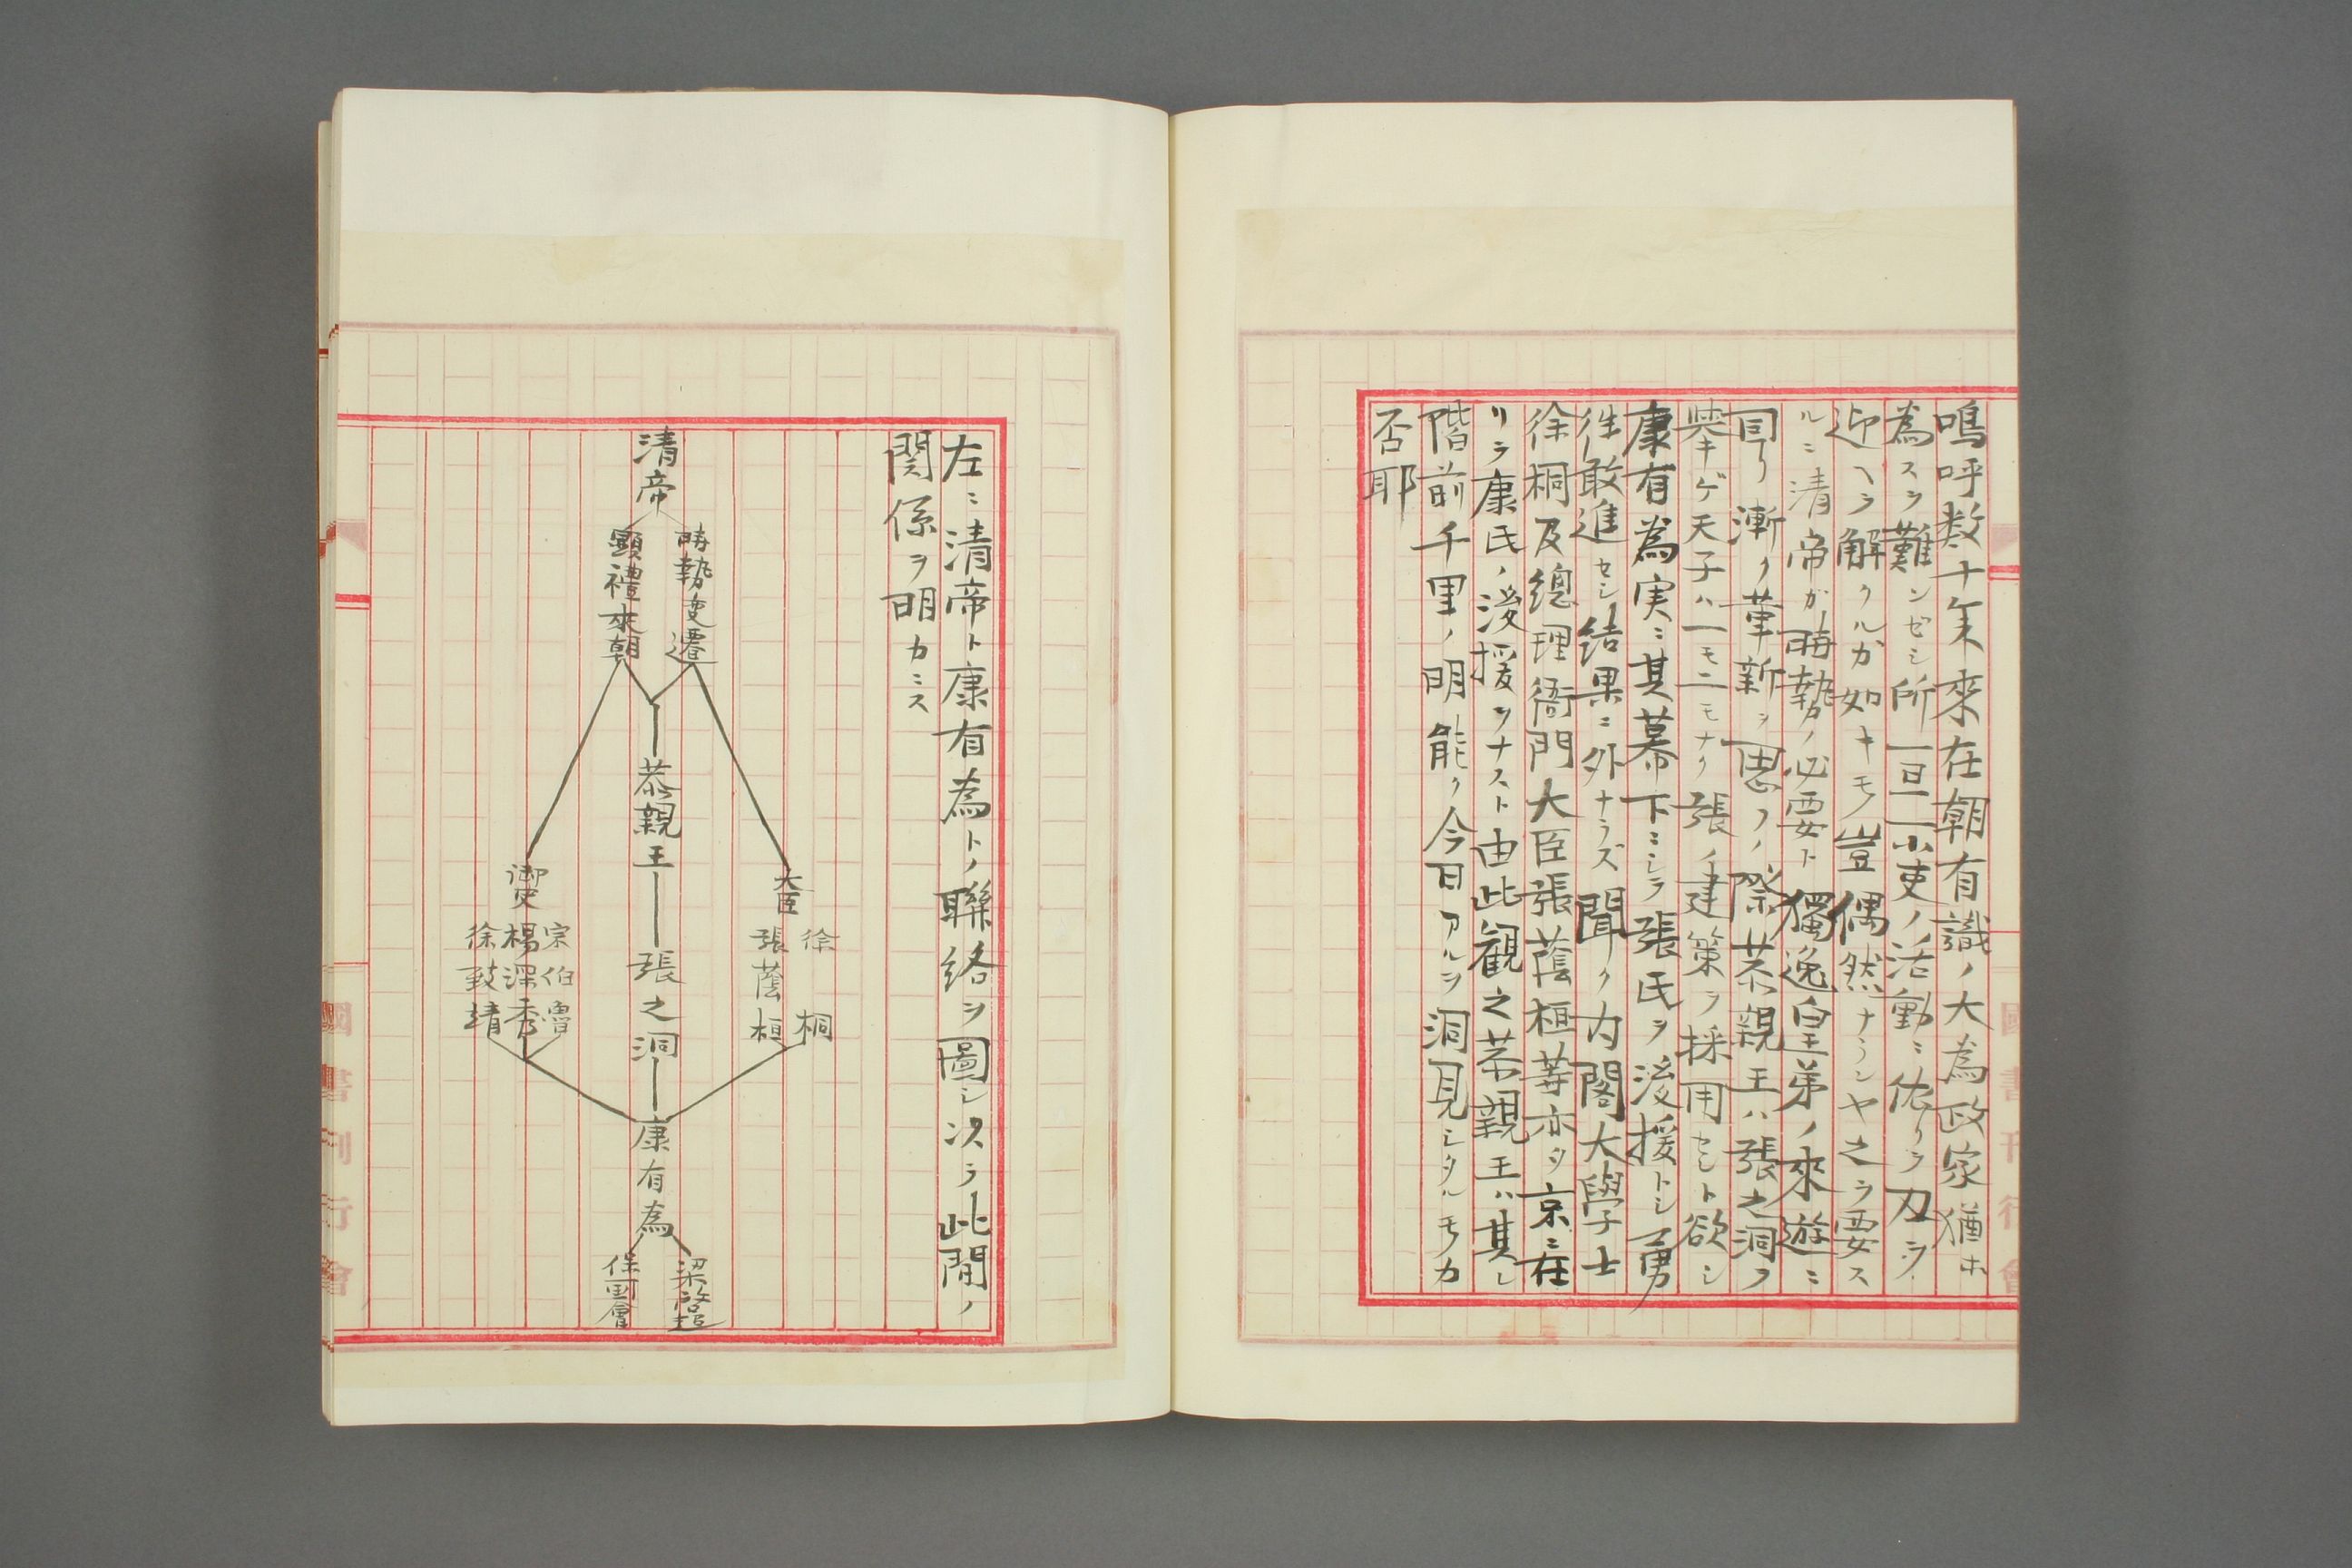 嗚呼数十年来在朝有識ノ大為政家猶ホ
為スヲ難ンゼシ所一旦一小吏ノ活動ニ依リテ刃ヲ
迎ヘテ解クルガ如キモノ豈偶然ナランヤ之ヲ要ス
ルニ清帝ガ時勢ノ必要ト獨逸皇弟ノ來遊ニ
耳リ漸ク革新ヲ思フノ際恭親王ハ張之洞ヲ
挙ゲ天子ハ一モ二モナク張ノ建策ヲ採用セント欲シ
康有為実ニ其幕下ニシテ張氏ヲ後援トシ勇
往敢進セシ結果ニ外ナラズ聞ク内閣大學士
徐桐及總理衙門大臣張蔭桓等亦タ京ニ在
リテ康氏ノ後援ヲナスト由此観之恭親王ハ其レ
階前千里ノ明能ク今日アルヲ洞見シタルモノカ
否耶
左ニ清帝ト康有為トノ聯絡ヲ圖シ以テ此間ノ
関係ヲ明カニス
清帝
時勢変遷
顕禮來朝
恭親王
張之洞
大臣
徐桐
張蔭桓
御史
宗伯魯
楊深秀
徐致靖
康有為
梁啓超
保国會
國書刊行會
國書刊行會